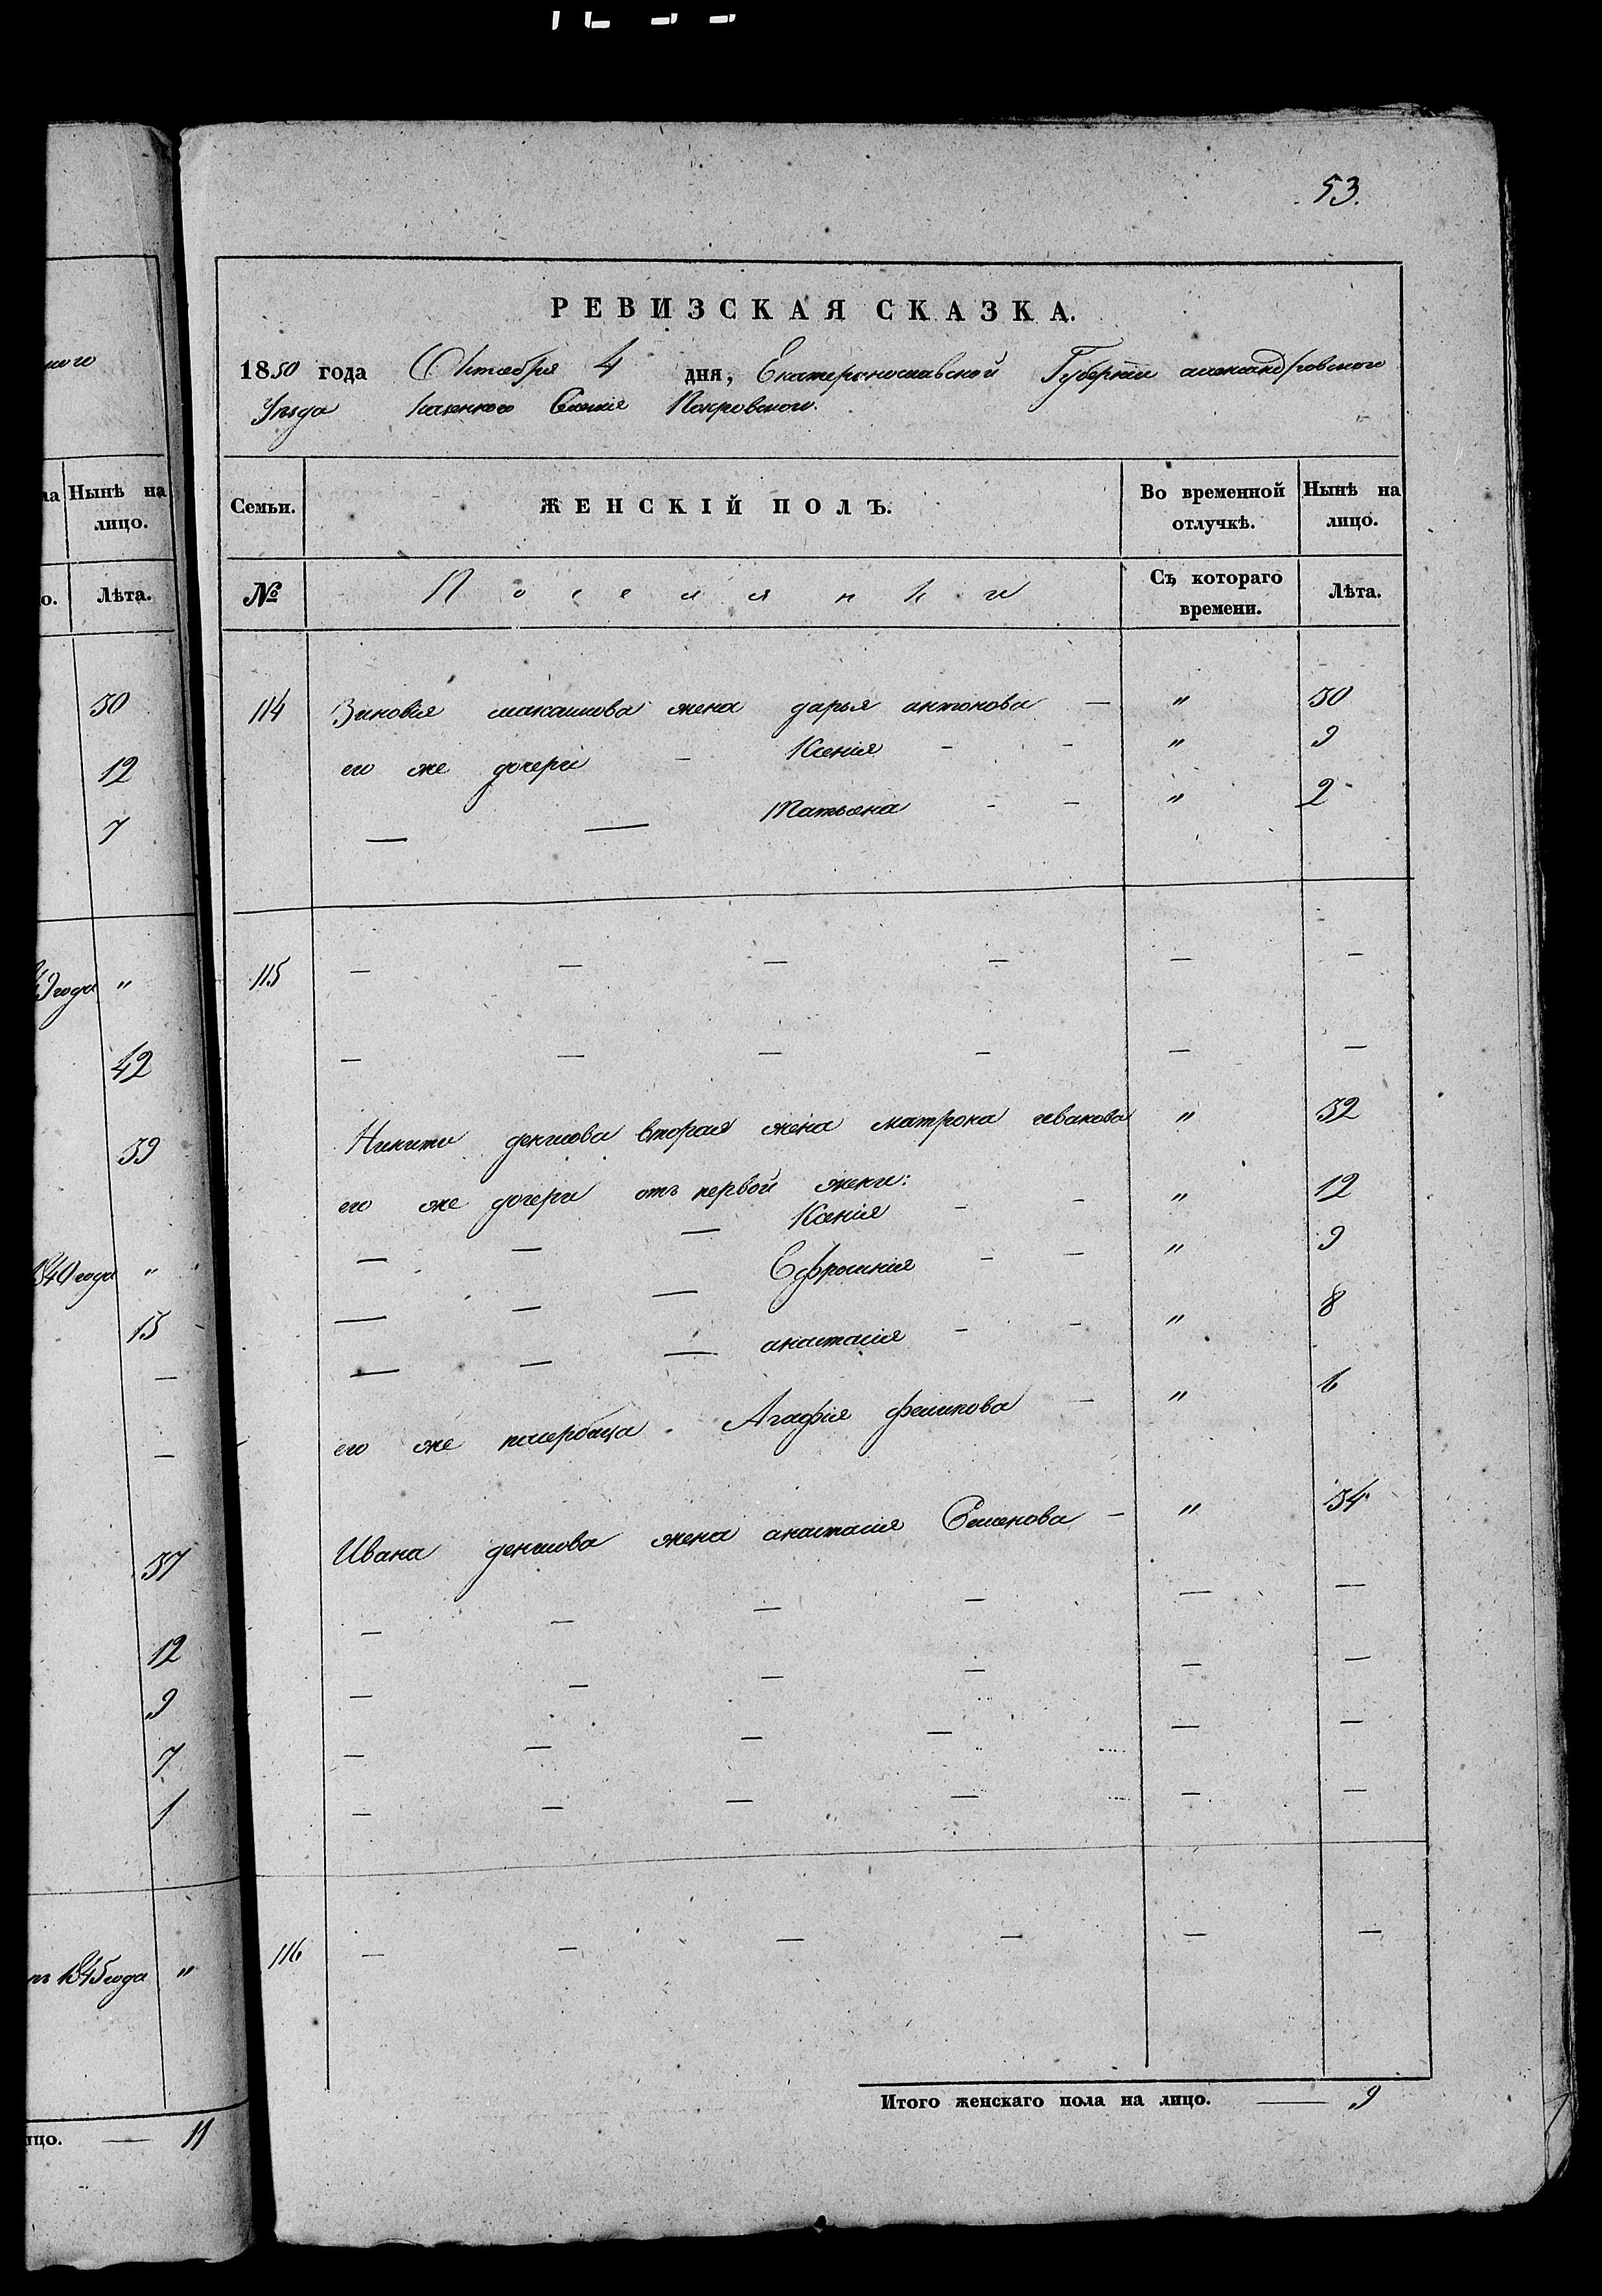 53.
РЕВИЗСКАЯ СКАЗКА.
1850 года Октября 4 дня, Екатеринославской Губерніи александровского
Уѣзда казенного Селенія Покровского.
Семьи. ЖЕНСКІЙ ПОЛЪ. Во временной отлучкѣ. Нынѣ на лицо.
№ Поселянки Съ котораго времени. Лѣта.
114 Зиновія жена дарья антонова — " 30
его же дочери — Ксенія - - " 9
— — Татьяна - - " 2
115 — — — — — —
— — — — — —
Никиты денисова вторая жена матрона иванова " 32
его же дочери отъ первой жены:
— — — Ксенія - - " 12
— — — Ефросинія - - " 9
— — — анастасія - - " 8
его же падчерица. Агафія — " 6
Ивана денисова жена анастасія Семенова — " 34
— — — — — —
— — — — — —
— — — — — —
— — — — — —
116 — — — — — —
Итого женскаго пола на лицо. — 9
ного
на Нынѣ на лицо.
о. Лѣта.
30
12
7
49 года "
42
39
1840 года "
15
—
—
37
12
9
7
1
1845 года "
ицо. — 11